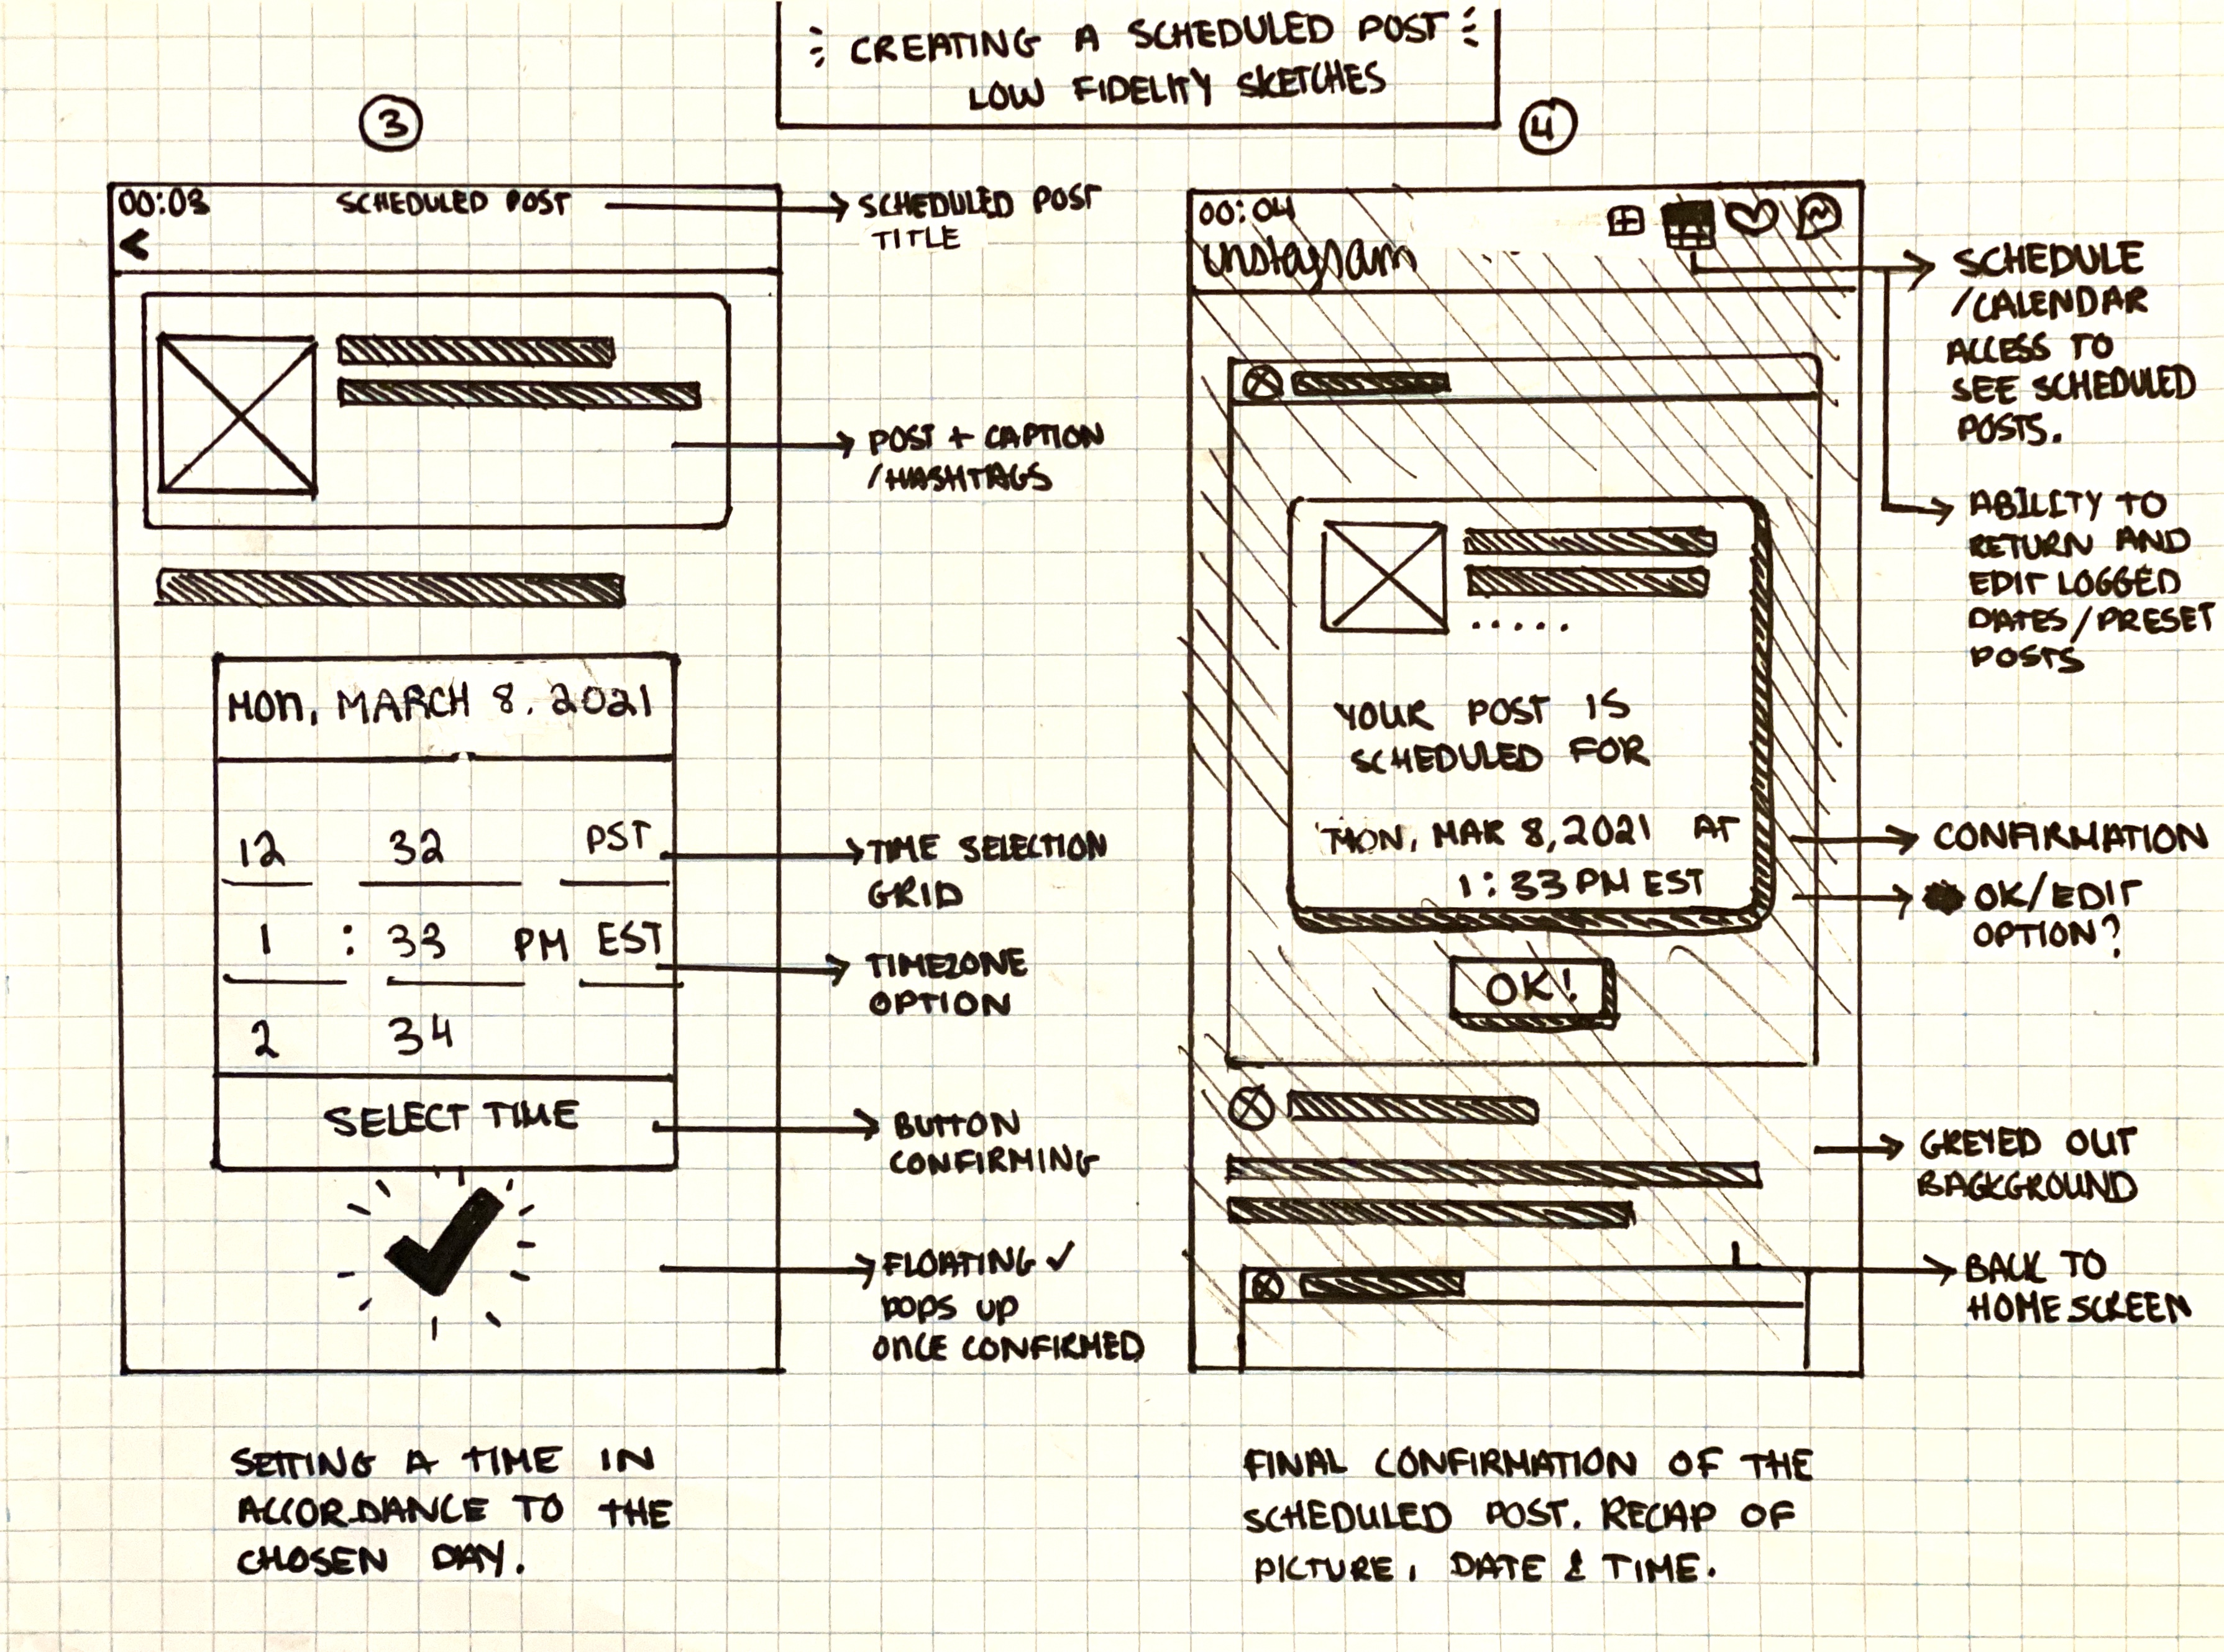 CREATING A SCHEDULED POST
LOW FIDELITY SKETCHES
3
00:03 SCHEDULED POST
<
SCHEDULED POST
TITLE
POST + CAPTION
/HASHTAGS
MON, MARCH 8, 2021
12 32 PST
1 : 33 PM EST
2 34
SELECT TIME
TIME SELECTION
GRID
TIMEZONE
OPTION
BUTTON
CONFIRMING
FLOATING ✓
POPS UP
ONCE CONFIRMED
SETTING A TIME IN
ACCORDANCE TO THE
CHOSEN DAY.
4
00:04
Instagram
YOUR POST IS
SCHEDULED FOR
MON, MAR 8, 2021 AT
1:33 PM EST
OK!
SCHEDULE
/CALENDAR
ACCESS TO
SEE SCHEDULED
POSTS.
ABILITY TO
RETURN AND
EDIT LOGGED
DATES/PRESET
POSTS
CONFIRMATION
OK/EDIT
OPTION?
GREYED OUT
BACKGROUND
BACK TO
HOME SCREEN
FINAL CONFIRMATION OF THE
SCHEDULED POST. RECAP OF
PICTURE, DATE & TIME.